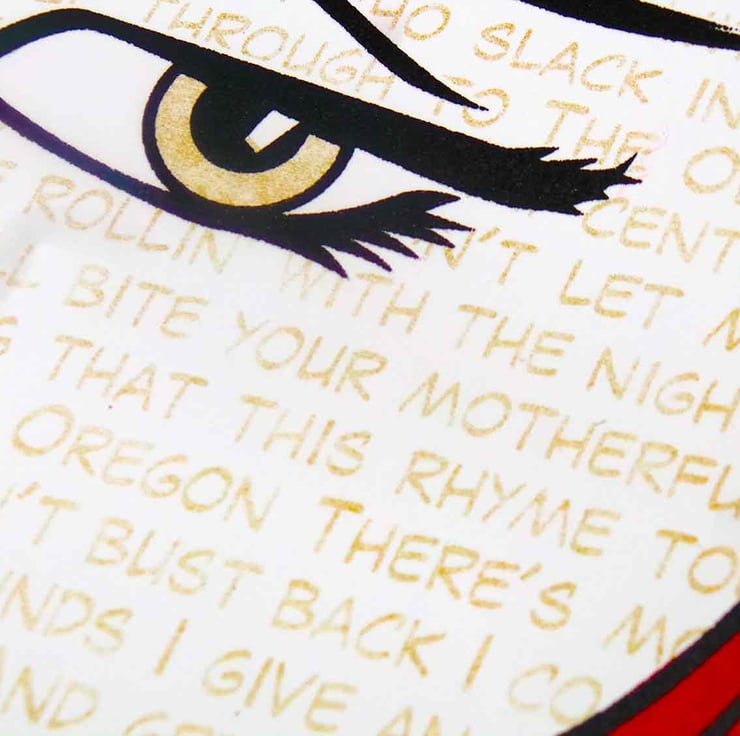 HO SLACK IN
THROUGH TO THE O
CENT
N'T LET M
ROLLIN WITH THE NIGH
BITE YOUR MOTHERFU
THAT THIS RHYME TO
OREGON THERE'S MO
'T BUST BACK I CO
NDS I GIVE AN
ND GE